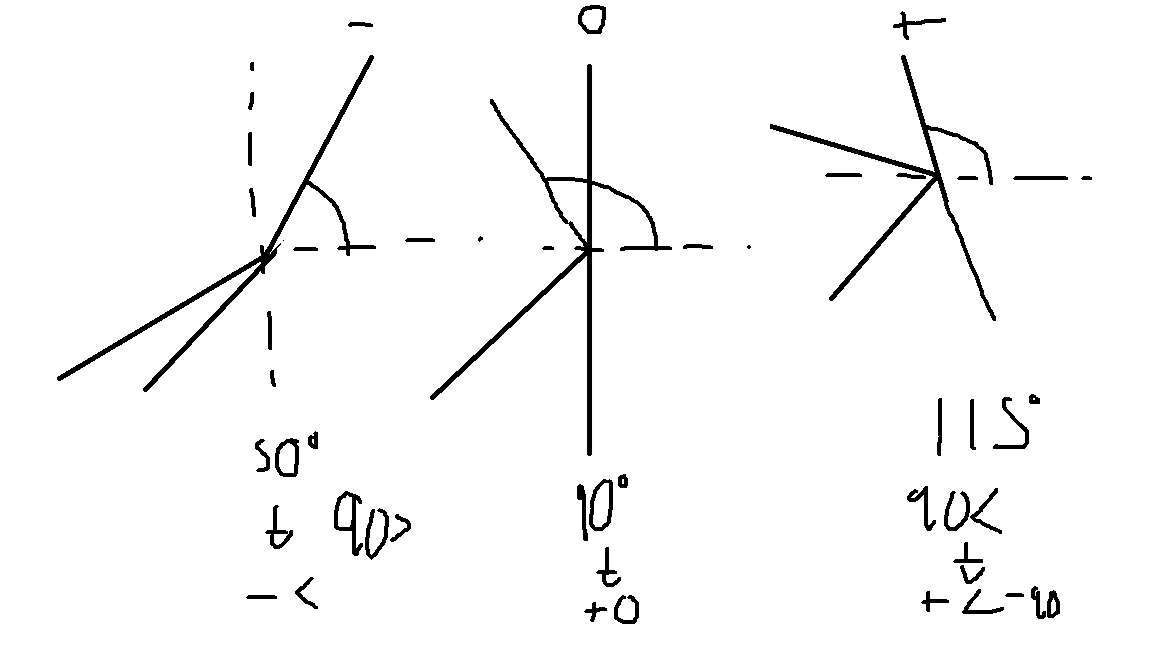 -
0
+
50°
t 90>
- <
90°
t
+0
115°
90<
t
+ <-90